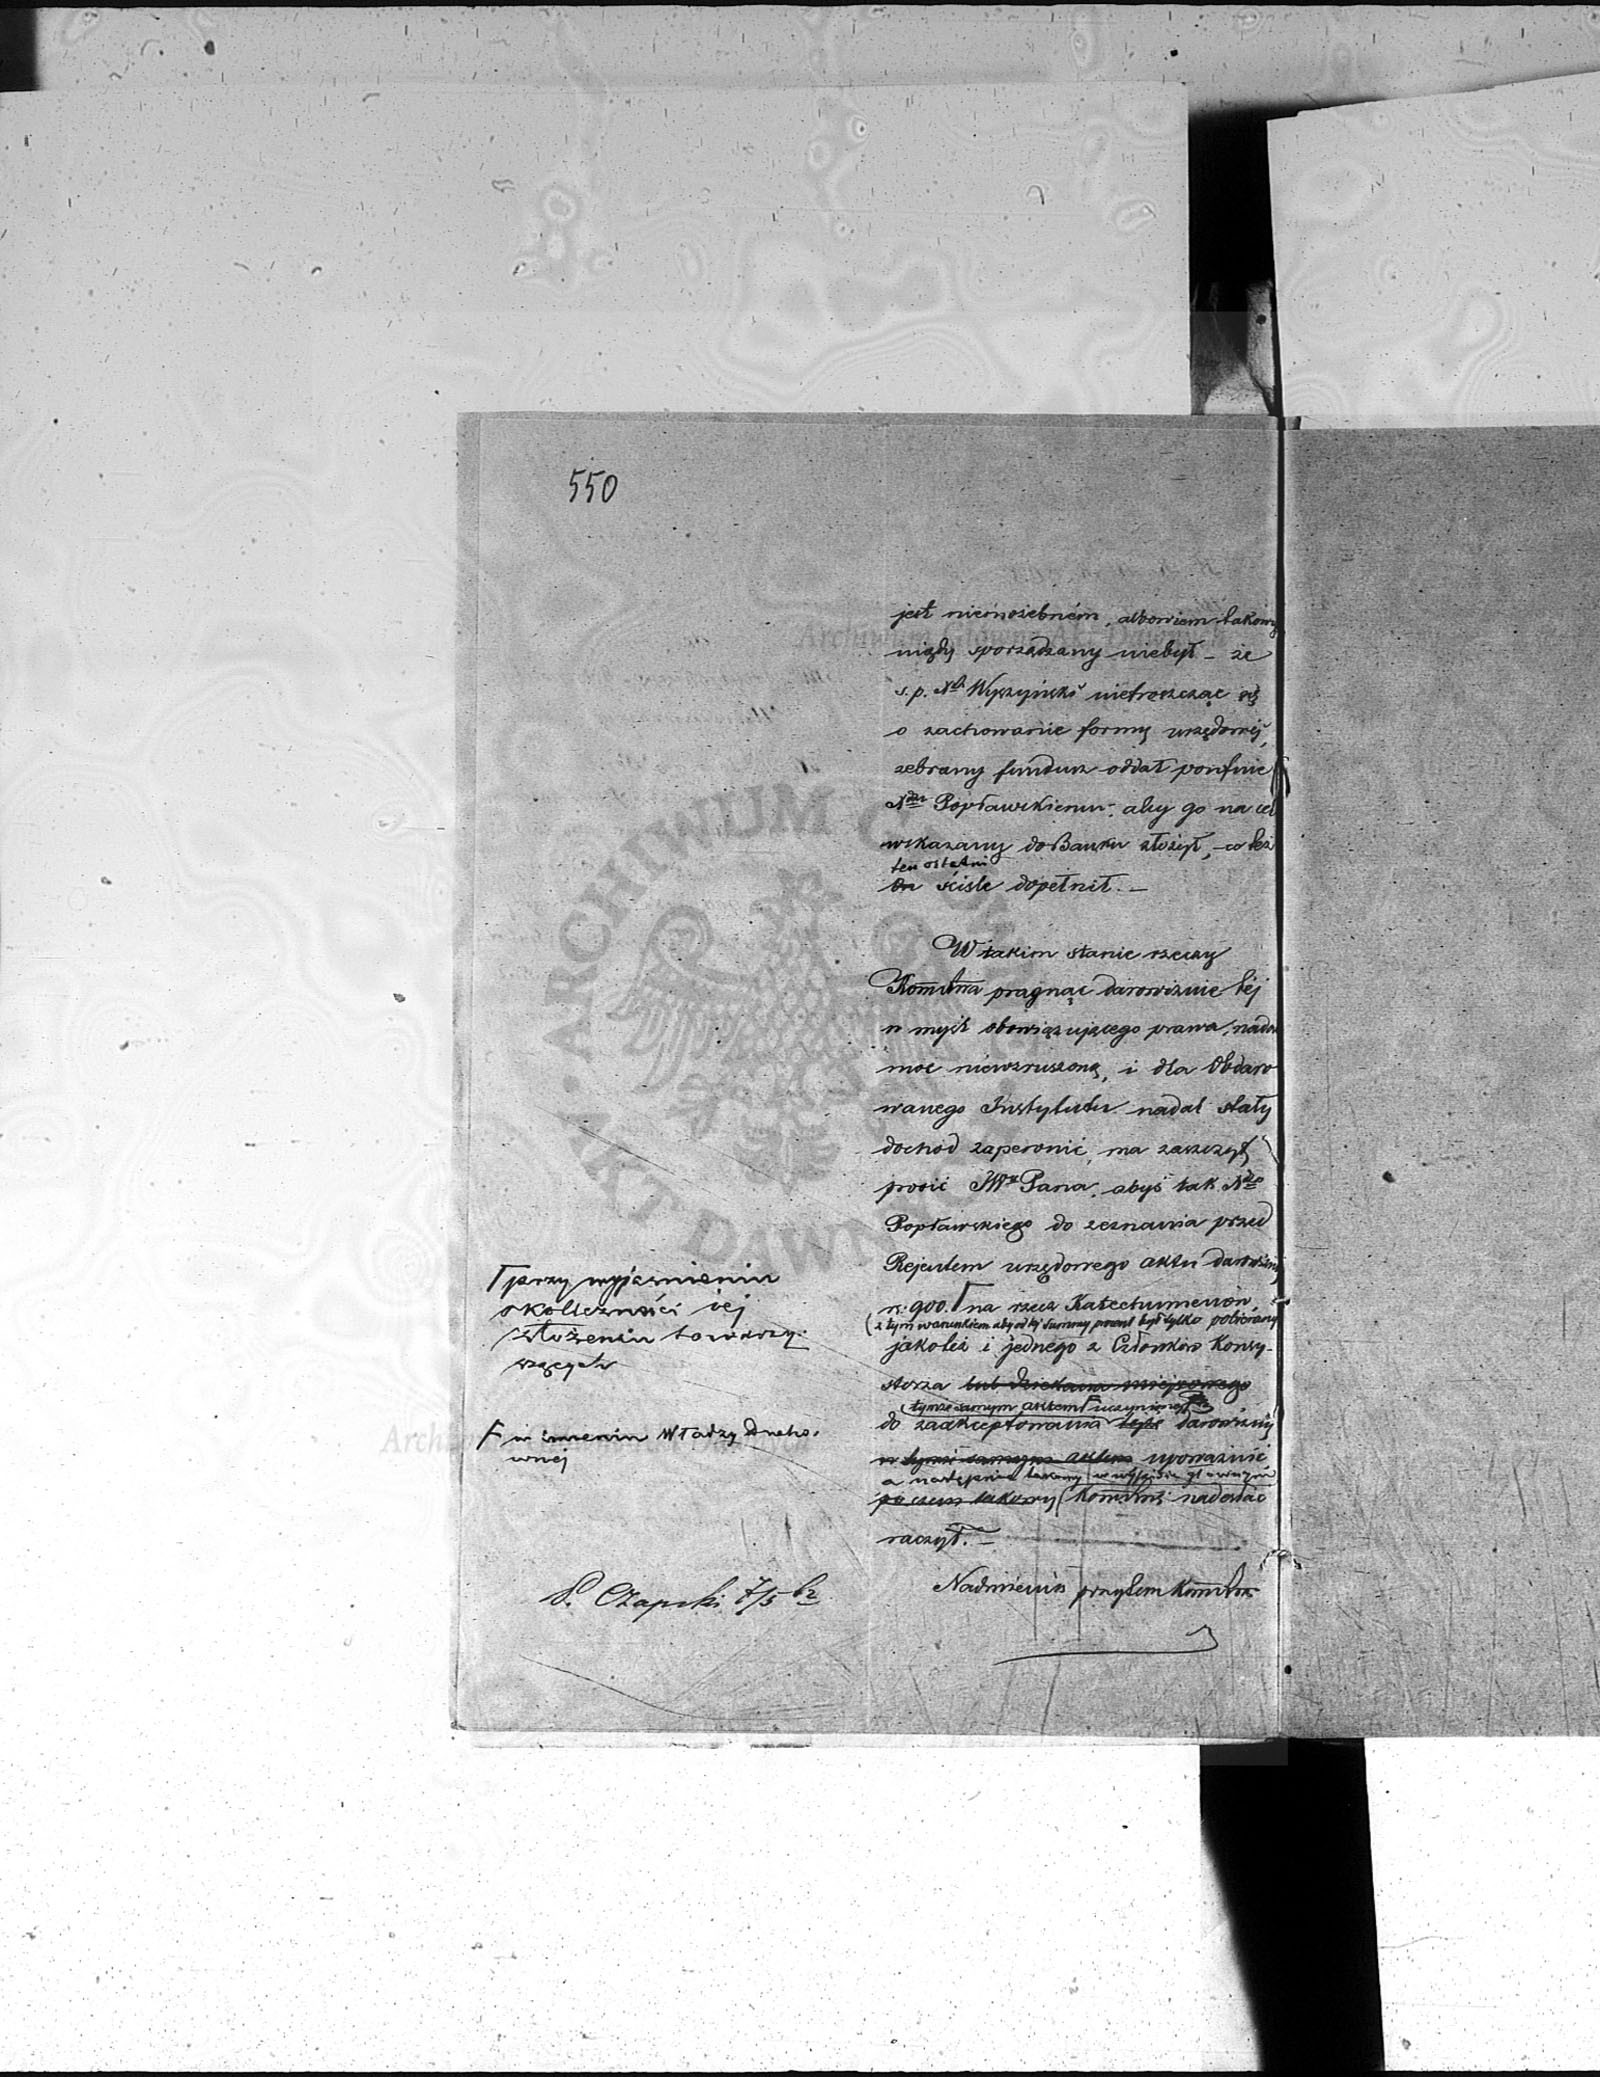 550
jest niemożebnem, albowiem takowy
nigdy sporządzany niebył – że
s. p. Wyszyński nietroszcząc się
o zachowanie formy urzędowéj,
zebrany fundusz oddał poufnie
Popławskiemu, aby go na cel
wskazany do Banku złożył, – co też
ten ostatni
On ściśle dopełnił. –
W takim stanie rzeczy
pragnąc darowiznie téj
w myśl obowiązującego prawa, nadać
moc niewzruszoną, i dla Obdaro
wanego Instytutu nadal stały
dochód zapewnić, ma zaszczyt
prosić JWo Pana, abyś tak
Popławskiego do zeznania przed
Rejentem urzędowego aktu darowizny
rs. 900. na rzecz Katechumenów,
z tym warunkiem aby od téj summy procent był tylko pobierany
jakoteż i jednego z Członków Konsy-
storza lub Dziekana miejscowego
tymże samym aktem uczynionéj
do zaakceptowania téjże darowizny
w tymże samym aktem upoważnić,
a następnie takowy w wypisie głównym
po czem takowy nadesłać
raczył. –
Nadmienia przytem
przy wyjaśnieniu
okoliczności jéj
złożeniu towarzy-
szących
w imieniu Władzy Ducho-
wnéj
P. Czapski 7/5 62
ARCHIWUM GŁÓWNE AKT DAWNYCH